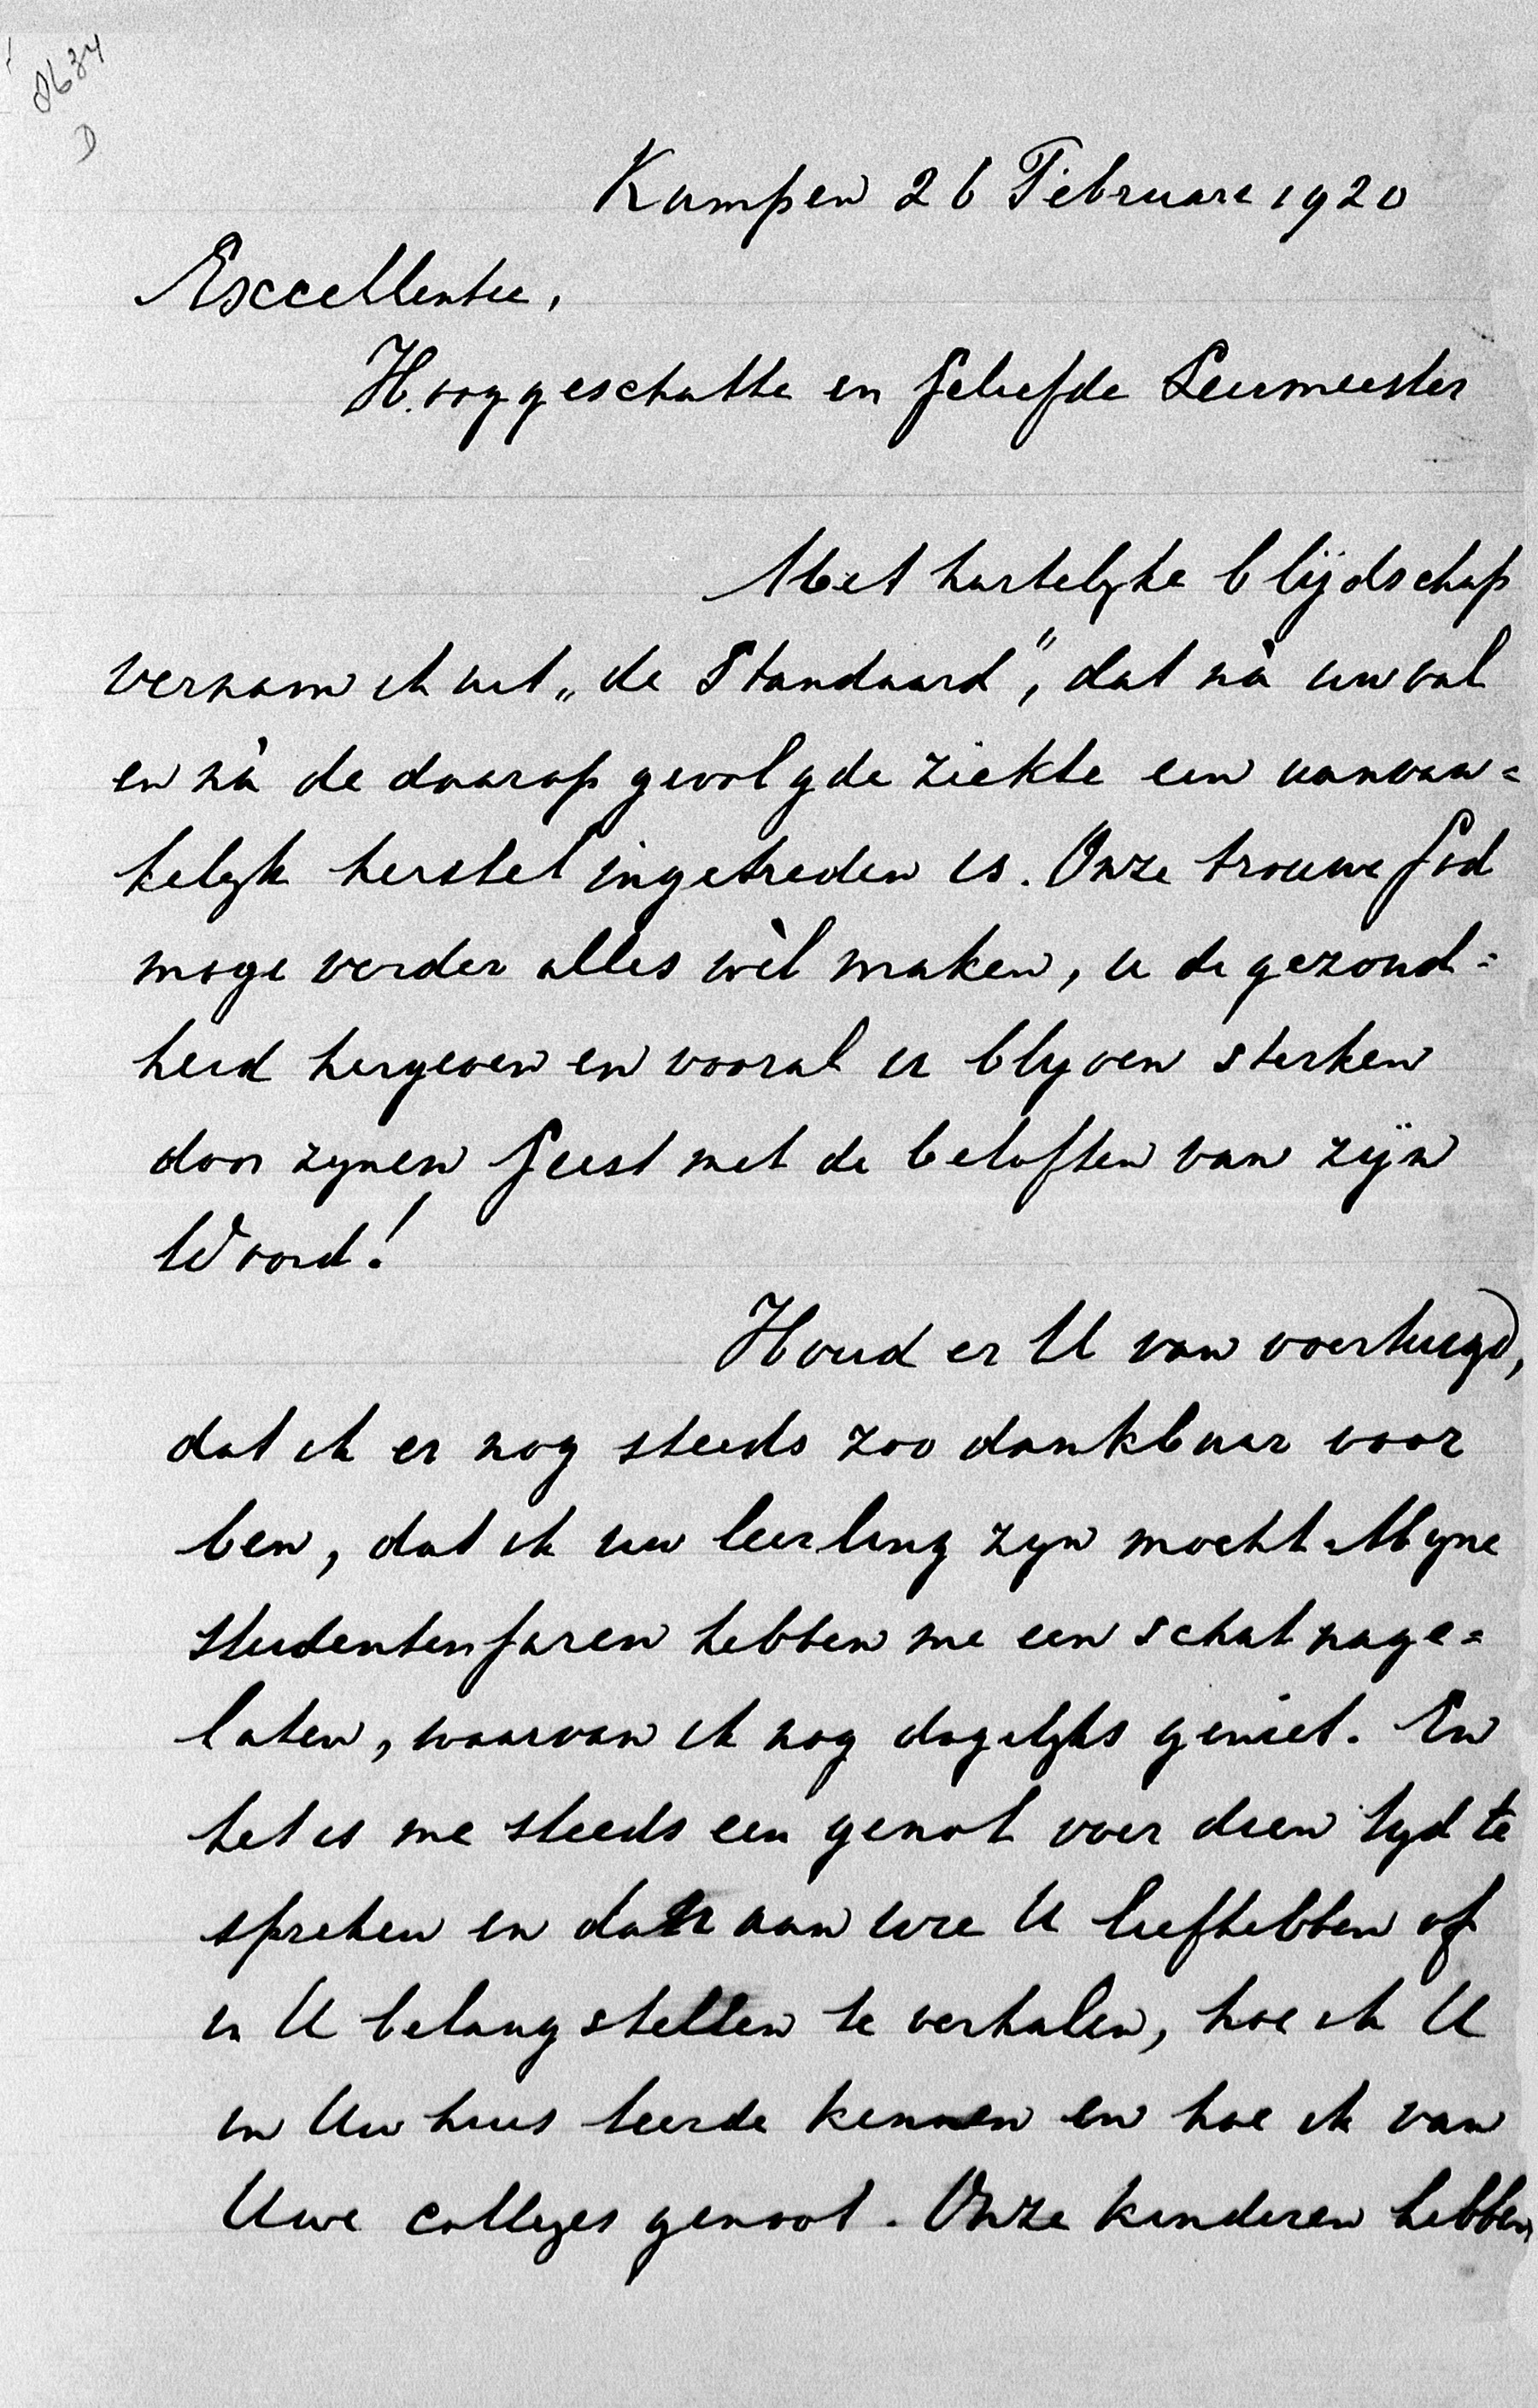 8634
D
Kampen 26 Februari 1920
Exccellentie,
Hooggeschatte en Geliefde Leermeester
Met hartelyke blijdschap
vernam ik uit „de Standaard", dat nà uw val
en nà de daarop gevolgde ziekte een aanvan=
kelyk herstel ingetreden is. Onze trouwe God
moge verder alles wèl maken, u de gezond=
heid hergeven en vooral u blyven sterken
door zynen Geest met de beloften van zijn
Woord!
Houd er U van overtuigd,
dat ik er nog steeds zoo dankbaar voor
ben, dat ik uw leerling zyn mocht. Myne
studentenjaren hebben me een schat nage=
laten, waarvan ik nog dagelyks geniet. En
het is me steeds een genot over dien tyd te
spreken en dan aan wie U liefhebben of
in U belangstellen te verhalen, hoe ik U
in Uw huis leerde kennen en hoe ik van
Uwe colleges genoot. Onze kinderen hebben